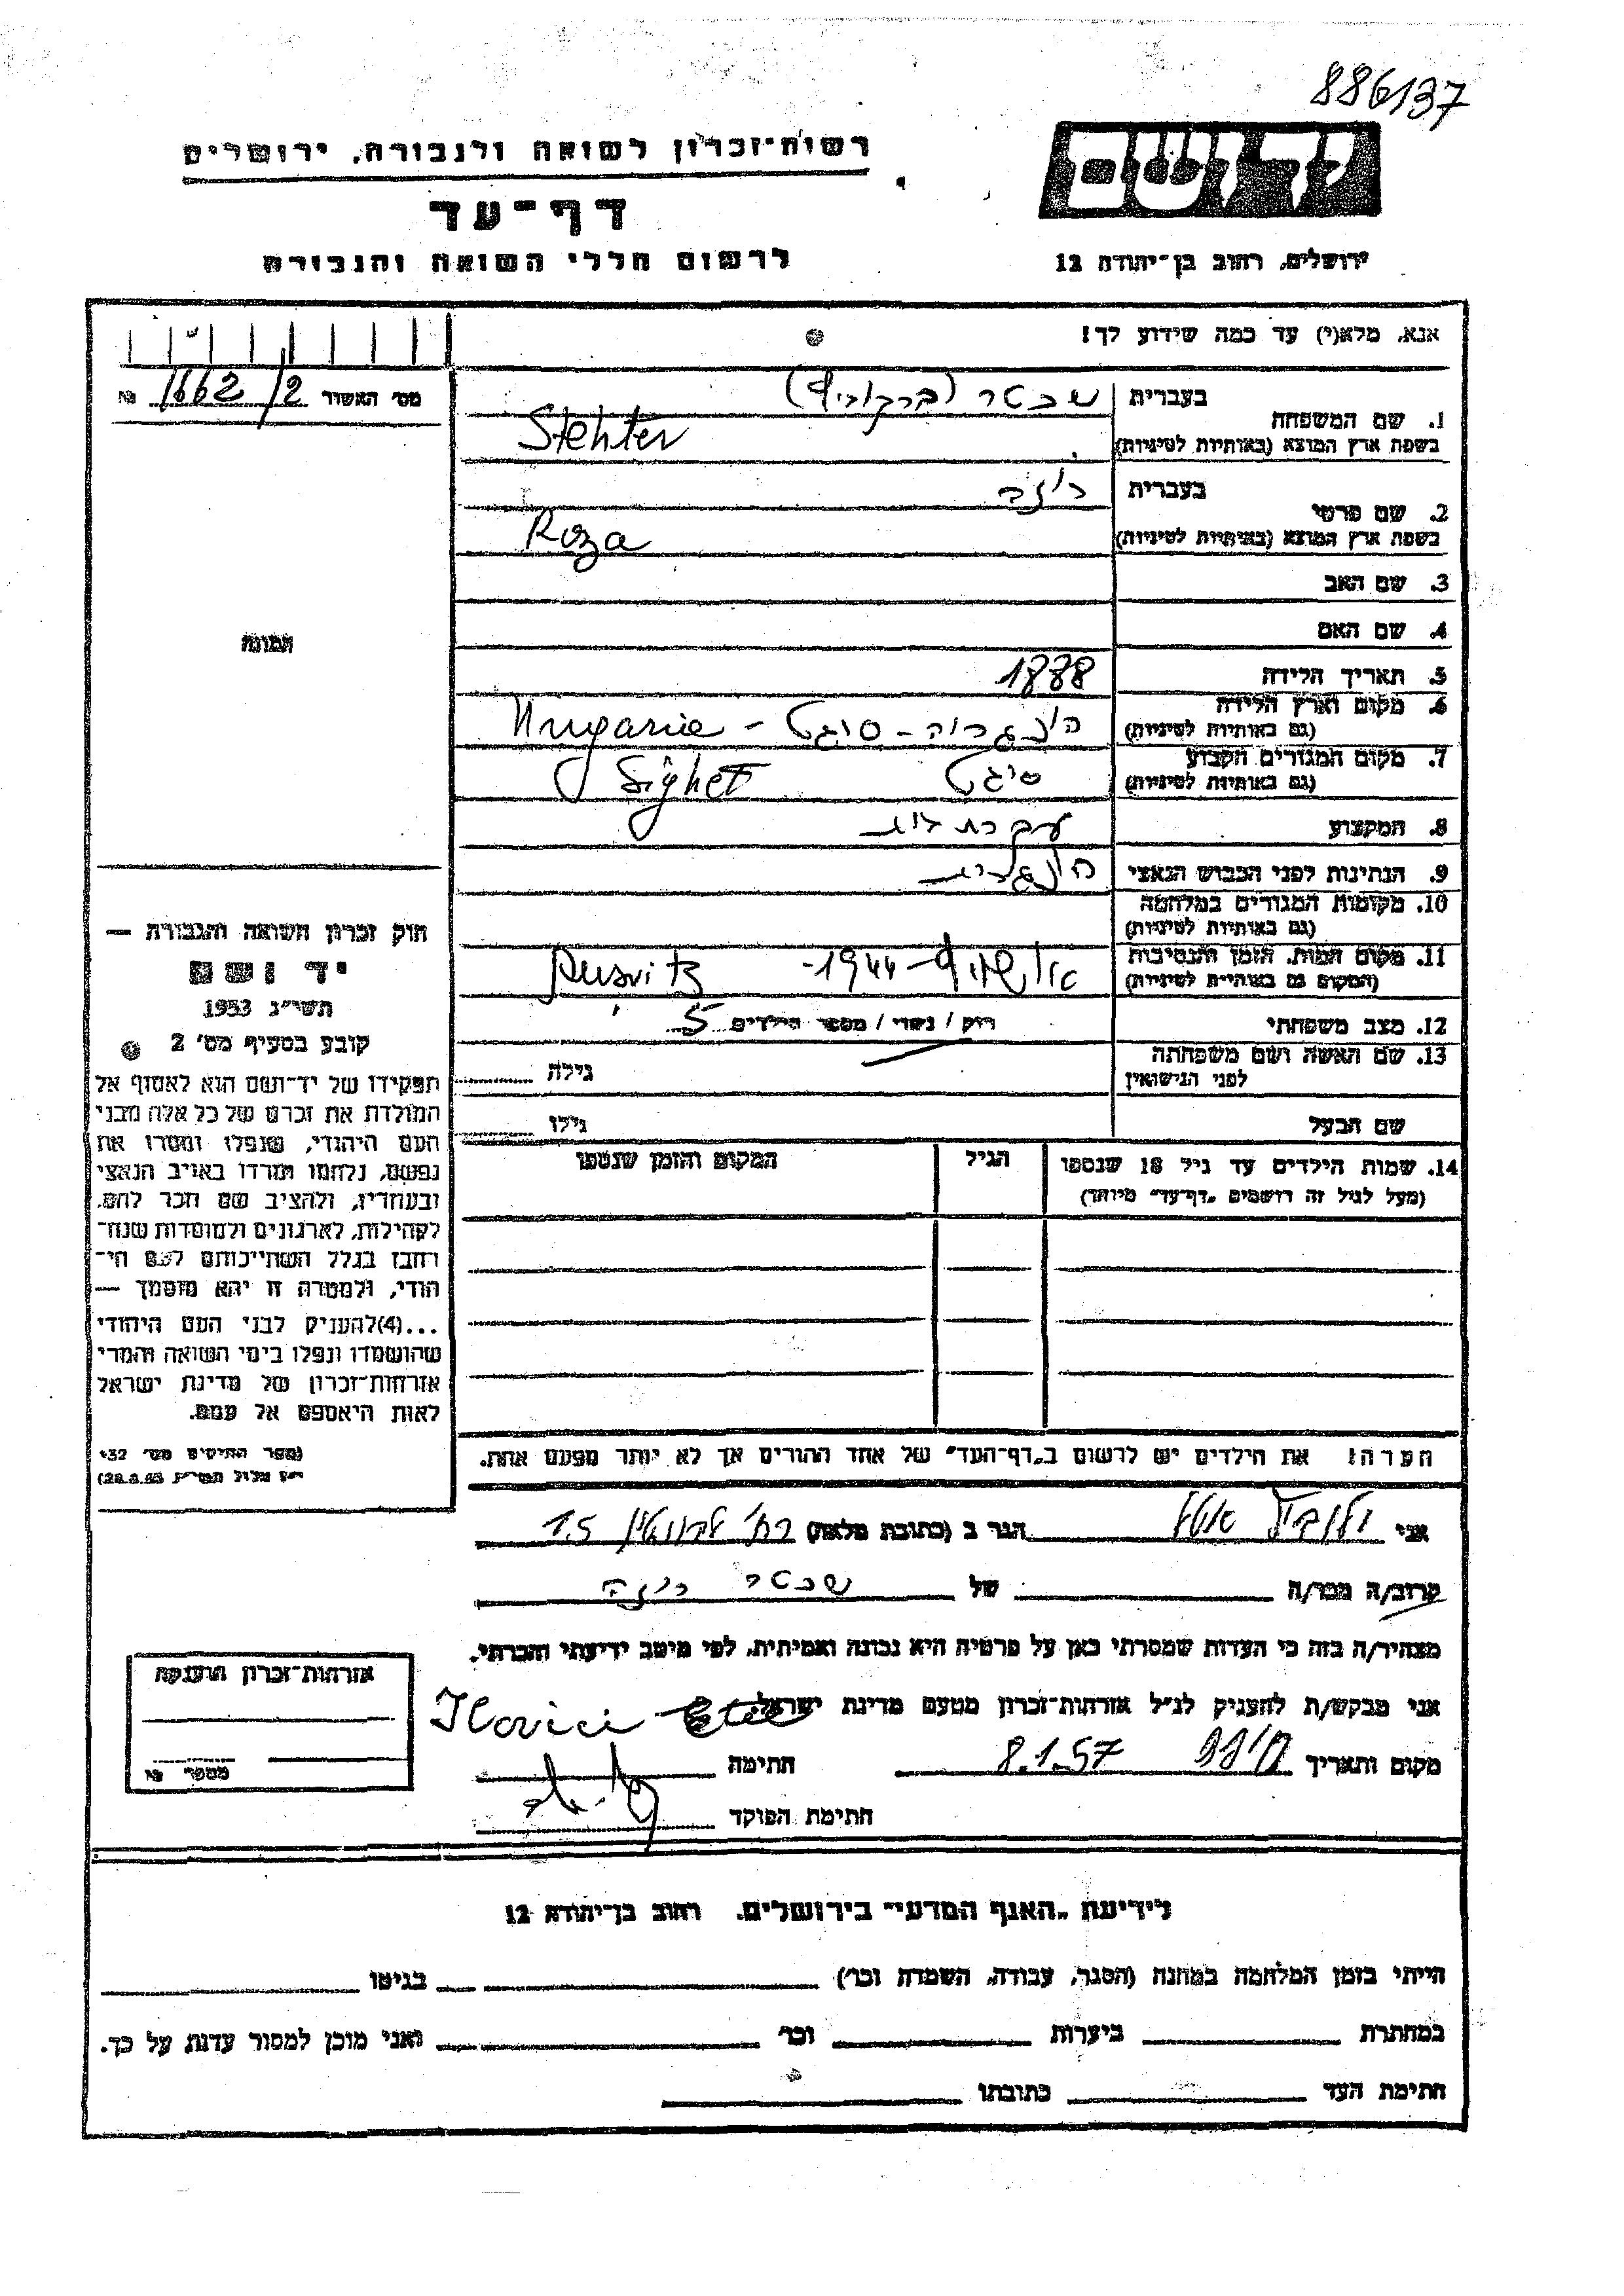 886137
רשות-זכרון לשואה ולגבורה, ירושלים
יד ושם
דף-עד
לרשום חללי השואה והגבורה
ירושלים, רחוב בן-יהודה 12
אנא, מלא(י) עד כמה שידוע לך!
מס' האשור 1662/2 №
1. שם המשפחה
בעברית שכטר (ברקוביץ)
בשפת ארץ המוצא (באותיות לטיניות) Stehter
2. שם פרטי
בעברית רוזה
בשפת ארץ המוצא (באותיות לטיניות) Roza
3. שם האב
4. שם האם
תמונה
5. תאריך הלידה 1888
6. מקום וארץ הלידה
(גם באותיות לטיניות) הונגריה - סיגט - Hungarie
7. מקום המגורים הקבוע
(גם באותיות לטיניות) סיגט Sighet
8. המקצוע עקרת בית
9. הנתינות לפני הכבוש הנאצי הונגרית
10. מקומות המגורים במלחמה
(גם באותיות לטיניות)
11. מקום המות, הזמן והנסיבות
(המקום גם באותיות לטיניות) אושויץ - 1944 - Ausvitz
12. מצב משפחתי רווק / נשוי / מספר הילדים 5
13. שם האשה ושם משפחתה
לפני הנישואין גילה
שם הבעל גילו
14. שמות הילדים עד גיל 18 שנספו הגיל המקום והזמן שנספו
(מעל לגיל זה רושמים "דף-עד" מיוחד)
חוק זכרון השואה והגבורה —
יד ושם
תשי"ג 1953
קובע בסעיף מס' 2
תפקידו של יד-ושם הוא לאסוף אל
המולדת את זכרם של כל אלה מבני
העם היהודי, שנפלו ומסרו את
נפשם, נלחמו ומרדו באויב הנאצי
ובעוזריו, ולהציב שם וזכר להם,
לקהילות, לארגונים ולמוסדות שנח-
רבו בגלל השתייכותם לעם הי-
הודי, ולמטרה זו יהא מוסמך —
...(4) להעניק לבני העם היהודי
שהושמדו ונפלו בימי השואה והמרי
אזרחות-זכרון של מדינת ישראל
לאות היאספם אל עמם.
(ספר החוקים מס' 132
י"ז אלול תשי"ג 28.8.53)
הערה! את הילדים יש לרשום ב"דף-העד" של אחד ההורים אך לא יותר מפעם אחת.
אני הגר ב (כתובת מלאה) רח' 15
קרוב/ה מכר/ה של שכטר רוזה
מצהיר/ה בזה כי העדות שמסרתי כאן על פרטיה היא נכונה ואמיתית, לפי מיטב ידיעתי והכרתי.
אני מבקש/ת להעניק לנ"ל אזרחות-זכרון מטעם מדינת ישראל.
מקום ותאריך 8.1.57 חתימה Ilovici
חתימת הפוקד
אזרחות-זכרון הוענקה
מספר №
לידיעת "האגף המדעי" בירושלים, רחוב בן-יהודה 12
הייתי בזמן המלחמה במחנה (הסגר, עבודה, השמדה וכו') בגיטו
במחתרת ביערות וכו' ואני מוכן למסור עדות על כך.
חתימת העד כתובתו